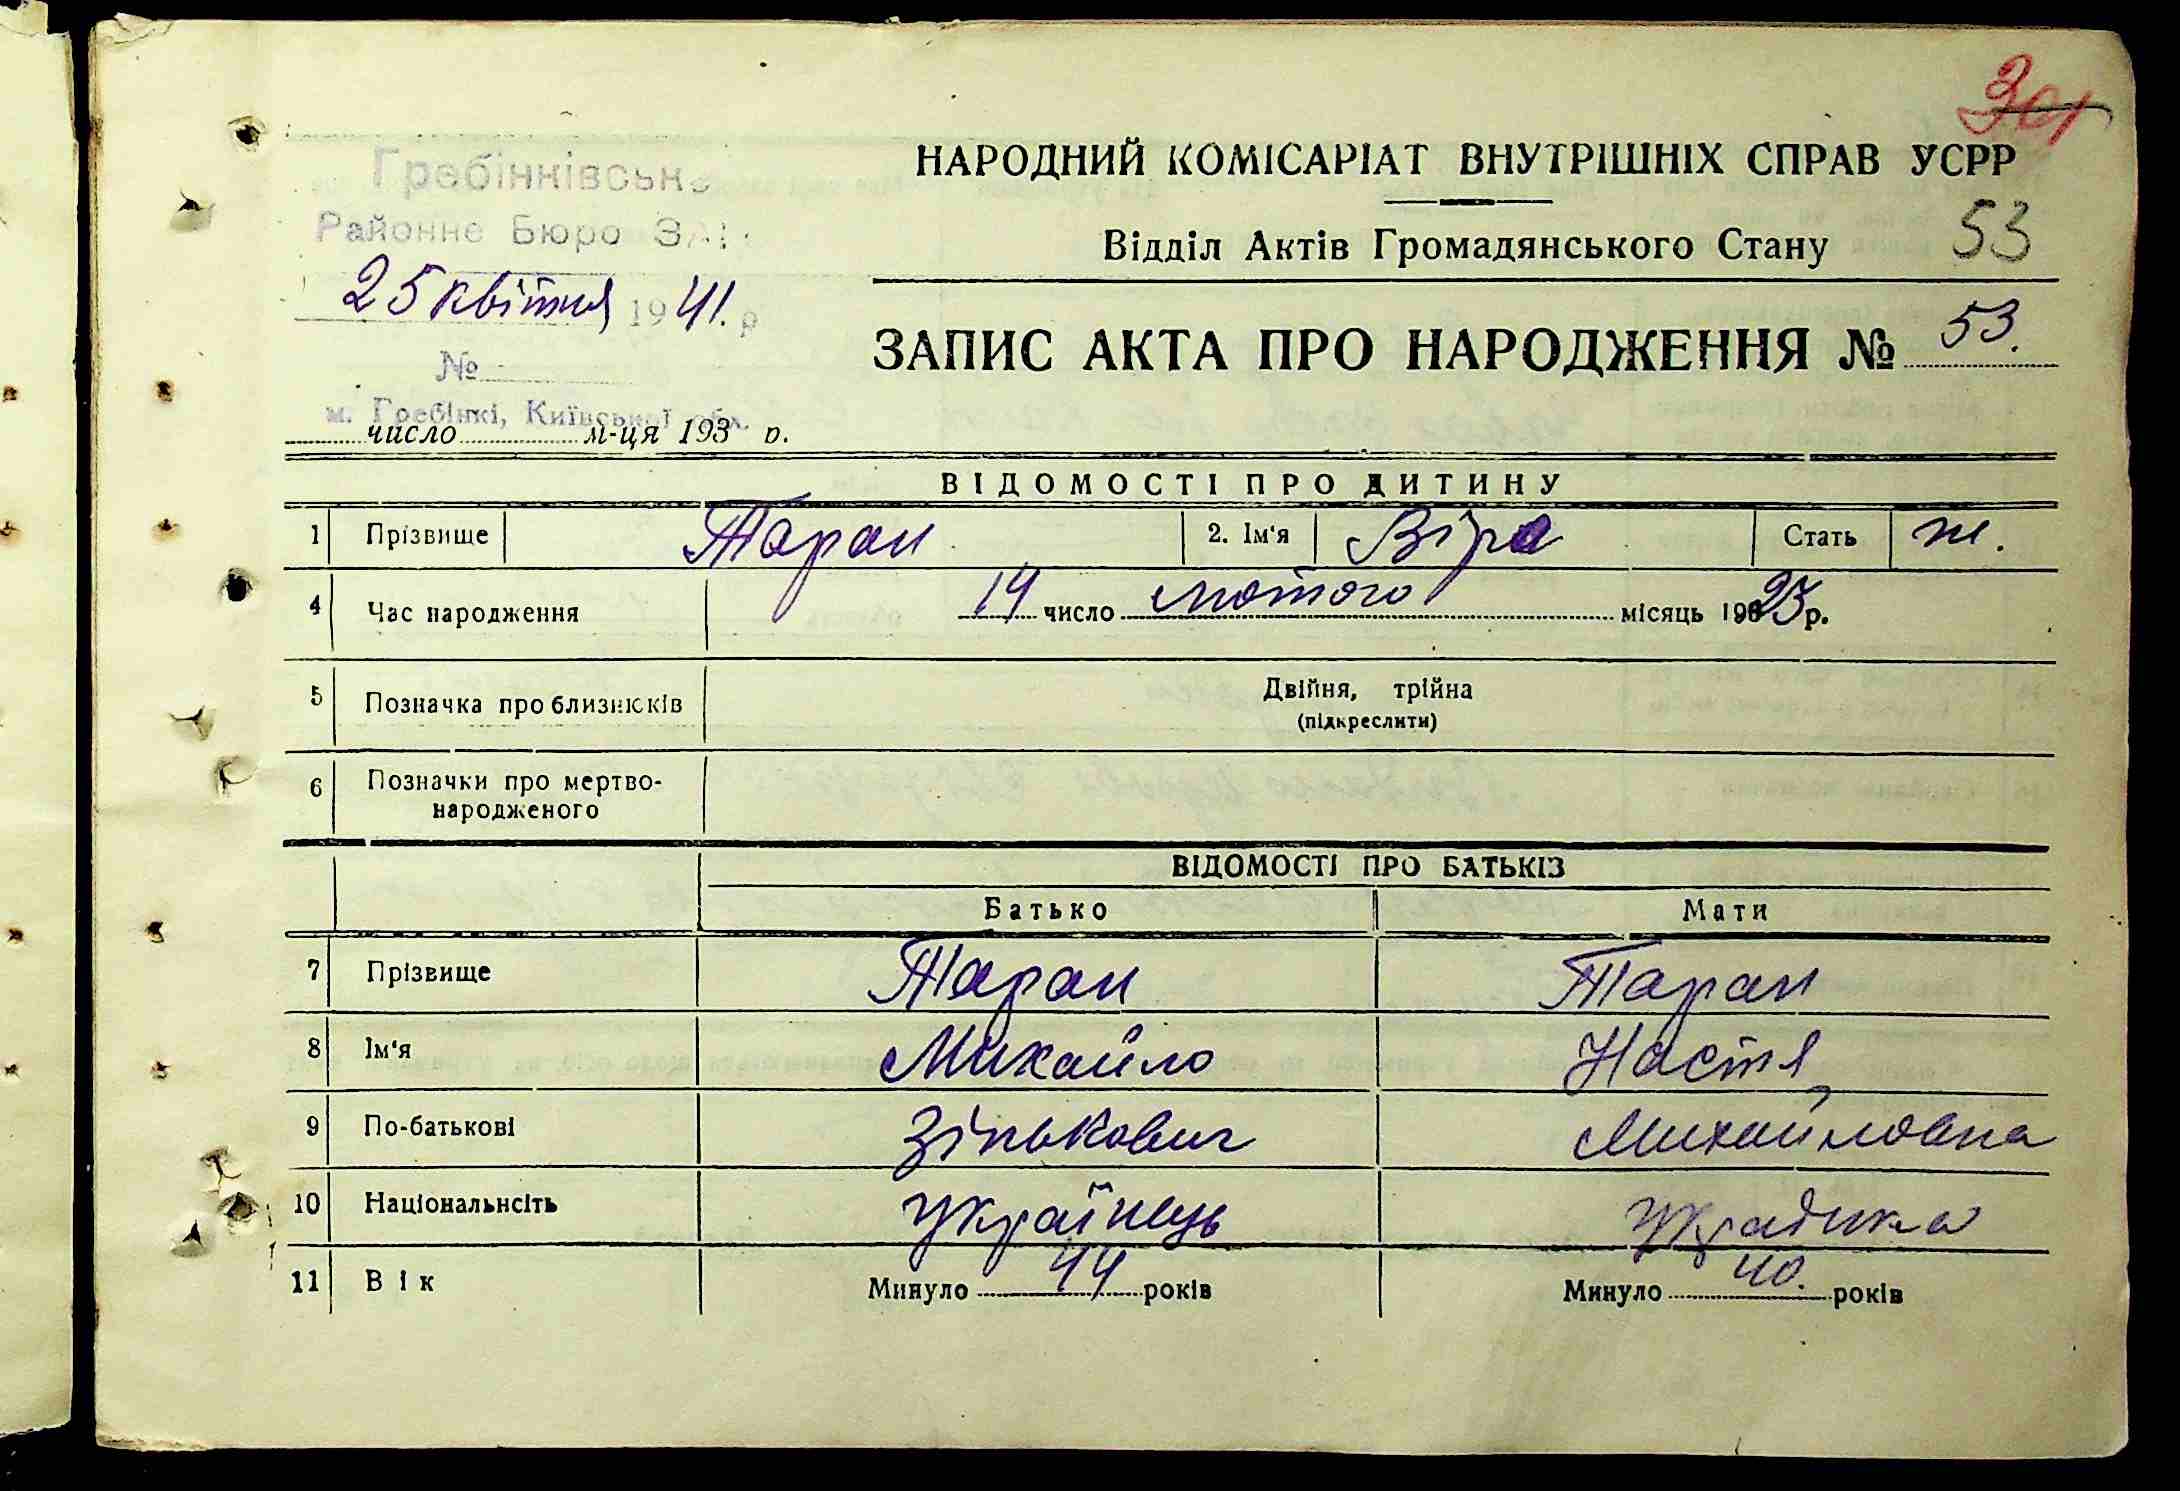 301
НАРОДНИЙ КОМІСАРІАТ ВНУТРІШНІХ СПРАВ УСРР
Гребінківське
Районне Бюро ЗАГС
Відділ Актів Громадянського Стану 53
25 квітня 1941. р
№
ЗАПИС АКТА ПРО НАРОДЖЕННЯ № 53.
м. Гребінкі, Київської обл.
число м-ця 193 р.
ВІДОМОСТІ ПРО ДИТИНУ
1 Прізвище Таран 2. Ім'я Віра Стать ж.
4 Час народження 14 число лютого місяць 1923 р.
5 Позначка про близнюків Двійня, трійна
(підкреслити)
6 Позначки про мертво-
народженого
ВІДОМОСТІ ПРО БАТЬКІВ
Батько Мати
7 Прізвище Таран Таран
8 Ім'я Михайло Настя
9 По-батькові Зінькович Михайловна
10 Національнсіть Українець Українка
11 Вік Минуло 44 років Минуло 40. років